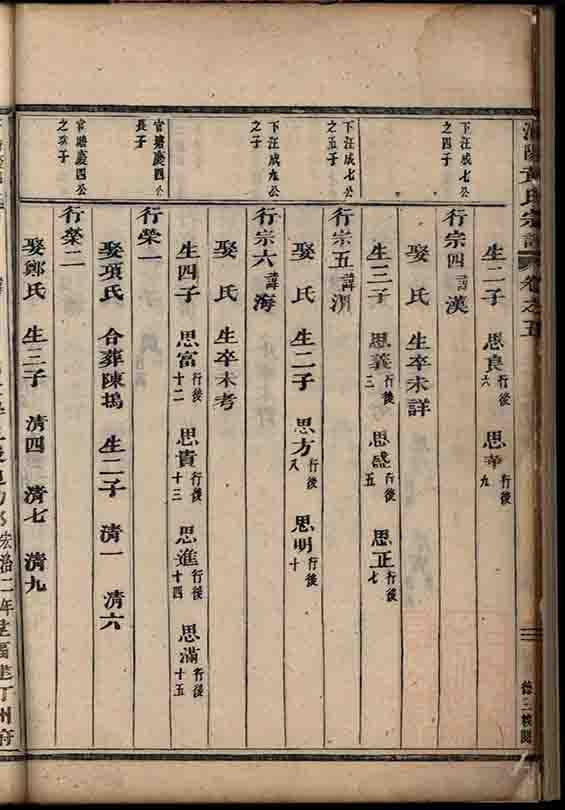 黃氏宗譜 卷之五
德三校閱
生二子 思良行後六 思華行後九
下汪成七公之四子
行宗四諱漢
娶 氏 生卒未詳
生三子 思義行後三 思盛行後五 思正行後七
下汪成七公之五子
行宗五諱湏
娶 氏 生二子 思方行後八 思明行後十
下汪成九公之子
行宗六諱海
娶 氏 生卒未考
生四子 思富行後十二 思貴行後十三 思進行後十四 思滿行後十五
官塘慶四公長子
行榮一
娶項氏 合葬陳塢 生二子 清一 清六
官塘慶四公之次子
行榮二
娶鄭氏 生三子 清四 清七 清九